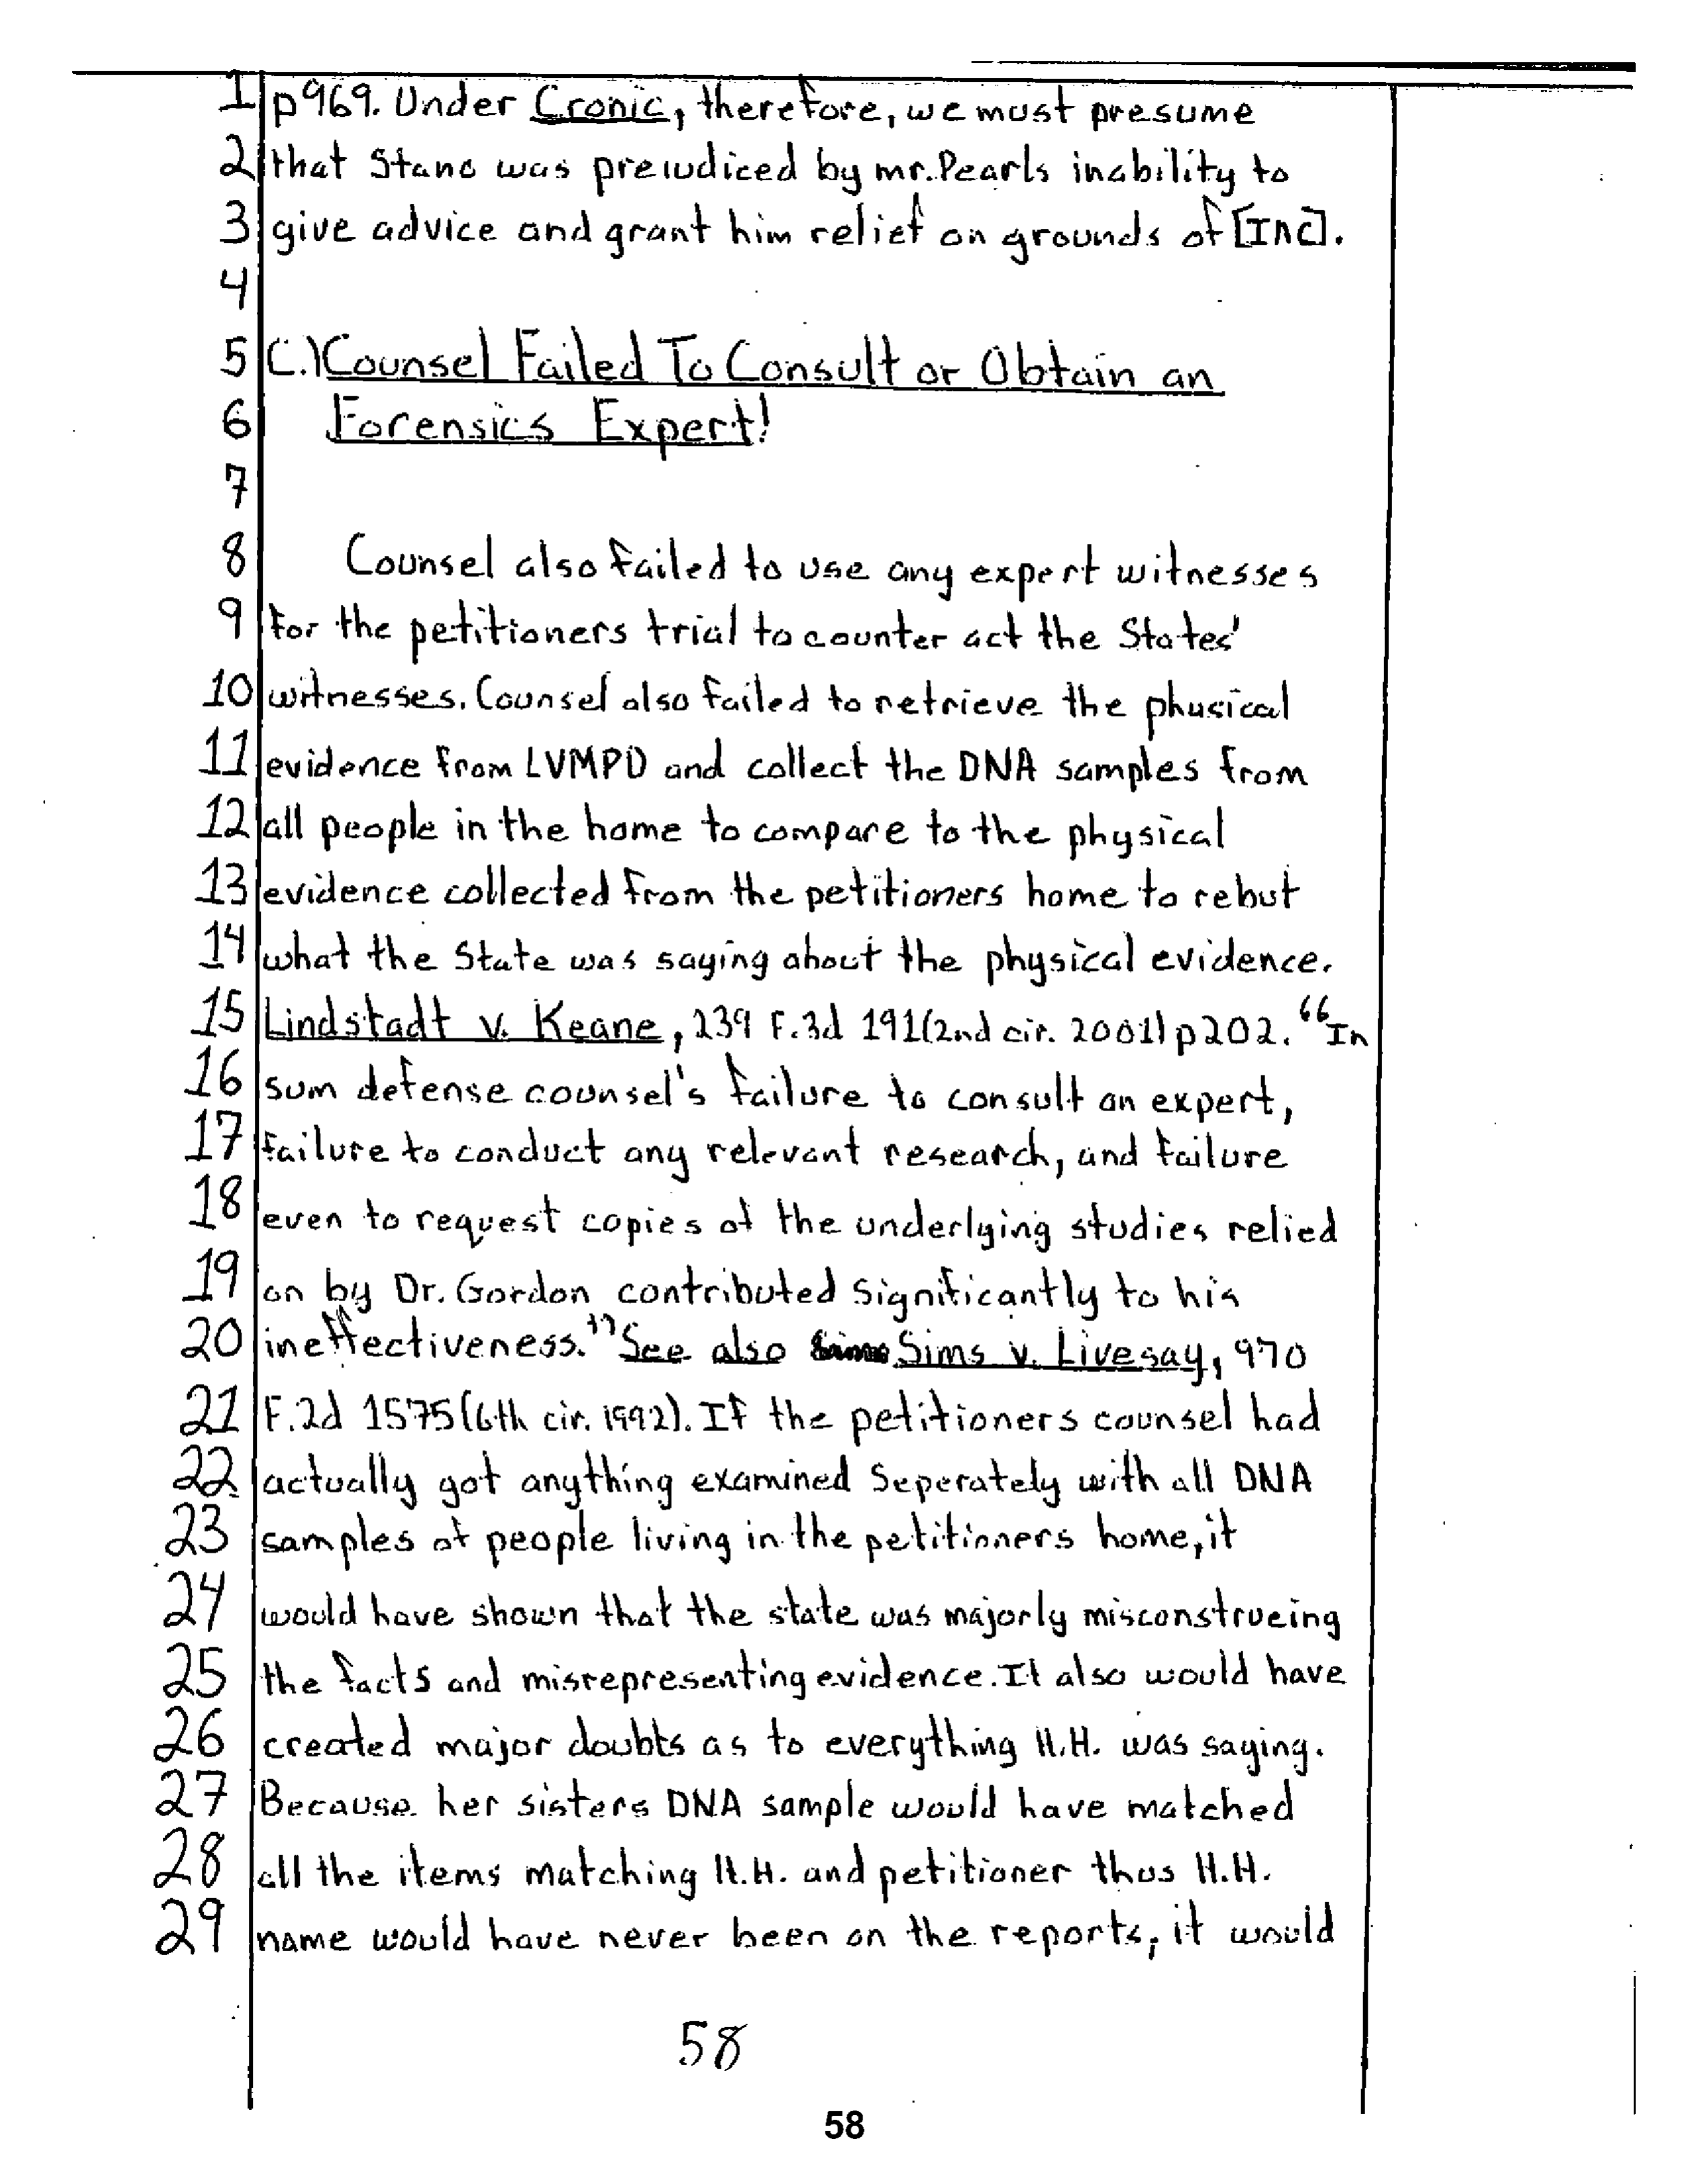 1 p969. Under Cronic, therefore, we must presume
2 that Stano was prewdiced by mr. Pearls inability to
3 give advice and grant him relief on grounds of [InC].
4
5 C.) Counsel Failed To Consult or Obtain an
6 Forensics Expert!
7
8 Counsel also failed to use any expert witnesses
9 for the petitioners trial to counter act the States'
10 witnesses. Counsel also failed to retrieve the phusical
11 evidence from LVMPD and collect the DNA samples from
12 all people in the home to compare to the physical
13 evidence collected from the petitioners home to rebut
14 what the State was saying about the physical evidence.
15 Lindstadt v. Keane, 239 F.3d 191(2nd cir. 2001) p202. "In
16 sum defense counsel's failure to consult an expert,
17 failure to conduct any relevant research, and failure
18 even to request copies of the underlying studies relied
19 on by Dr. Gordon contributed significantly to his
20 ineffectiveness." See also Sims v. Livesay, 970
21 F.2d 1575(6th cir. 1992). If the petitioners counsel had
22 actually got anything examined Seperately with all DNA
23 samples of people living in the petitioners home, it
24 would have shown that the state was majorly misconstrueing
25 the facts and misrepresenting evidence. It also would have
26 created major doubts as to everything H.H. was saying.
27 Because her sisters DNA sample would have matched
28 all the items matching H.H. and petitioner thus H.H.
29 name would have never been on the reports, it would
58
58